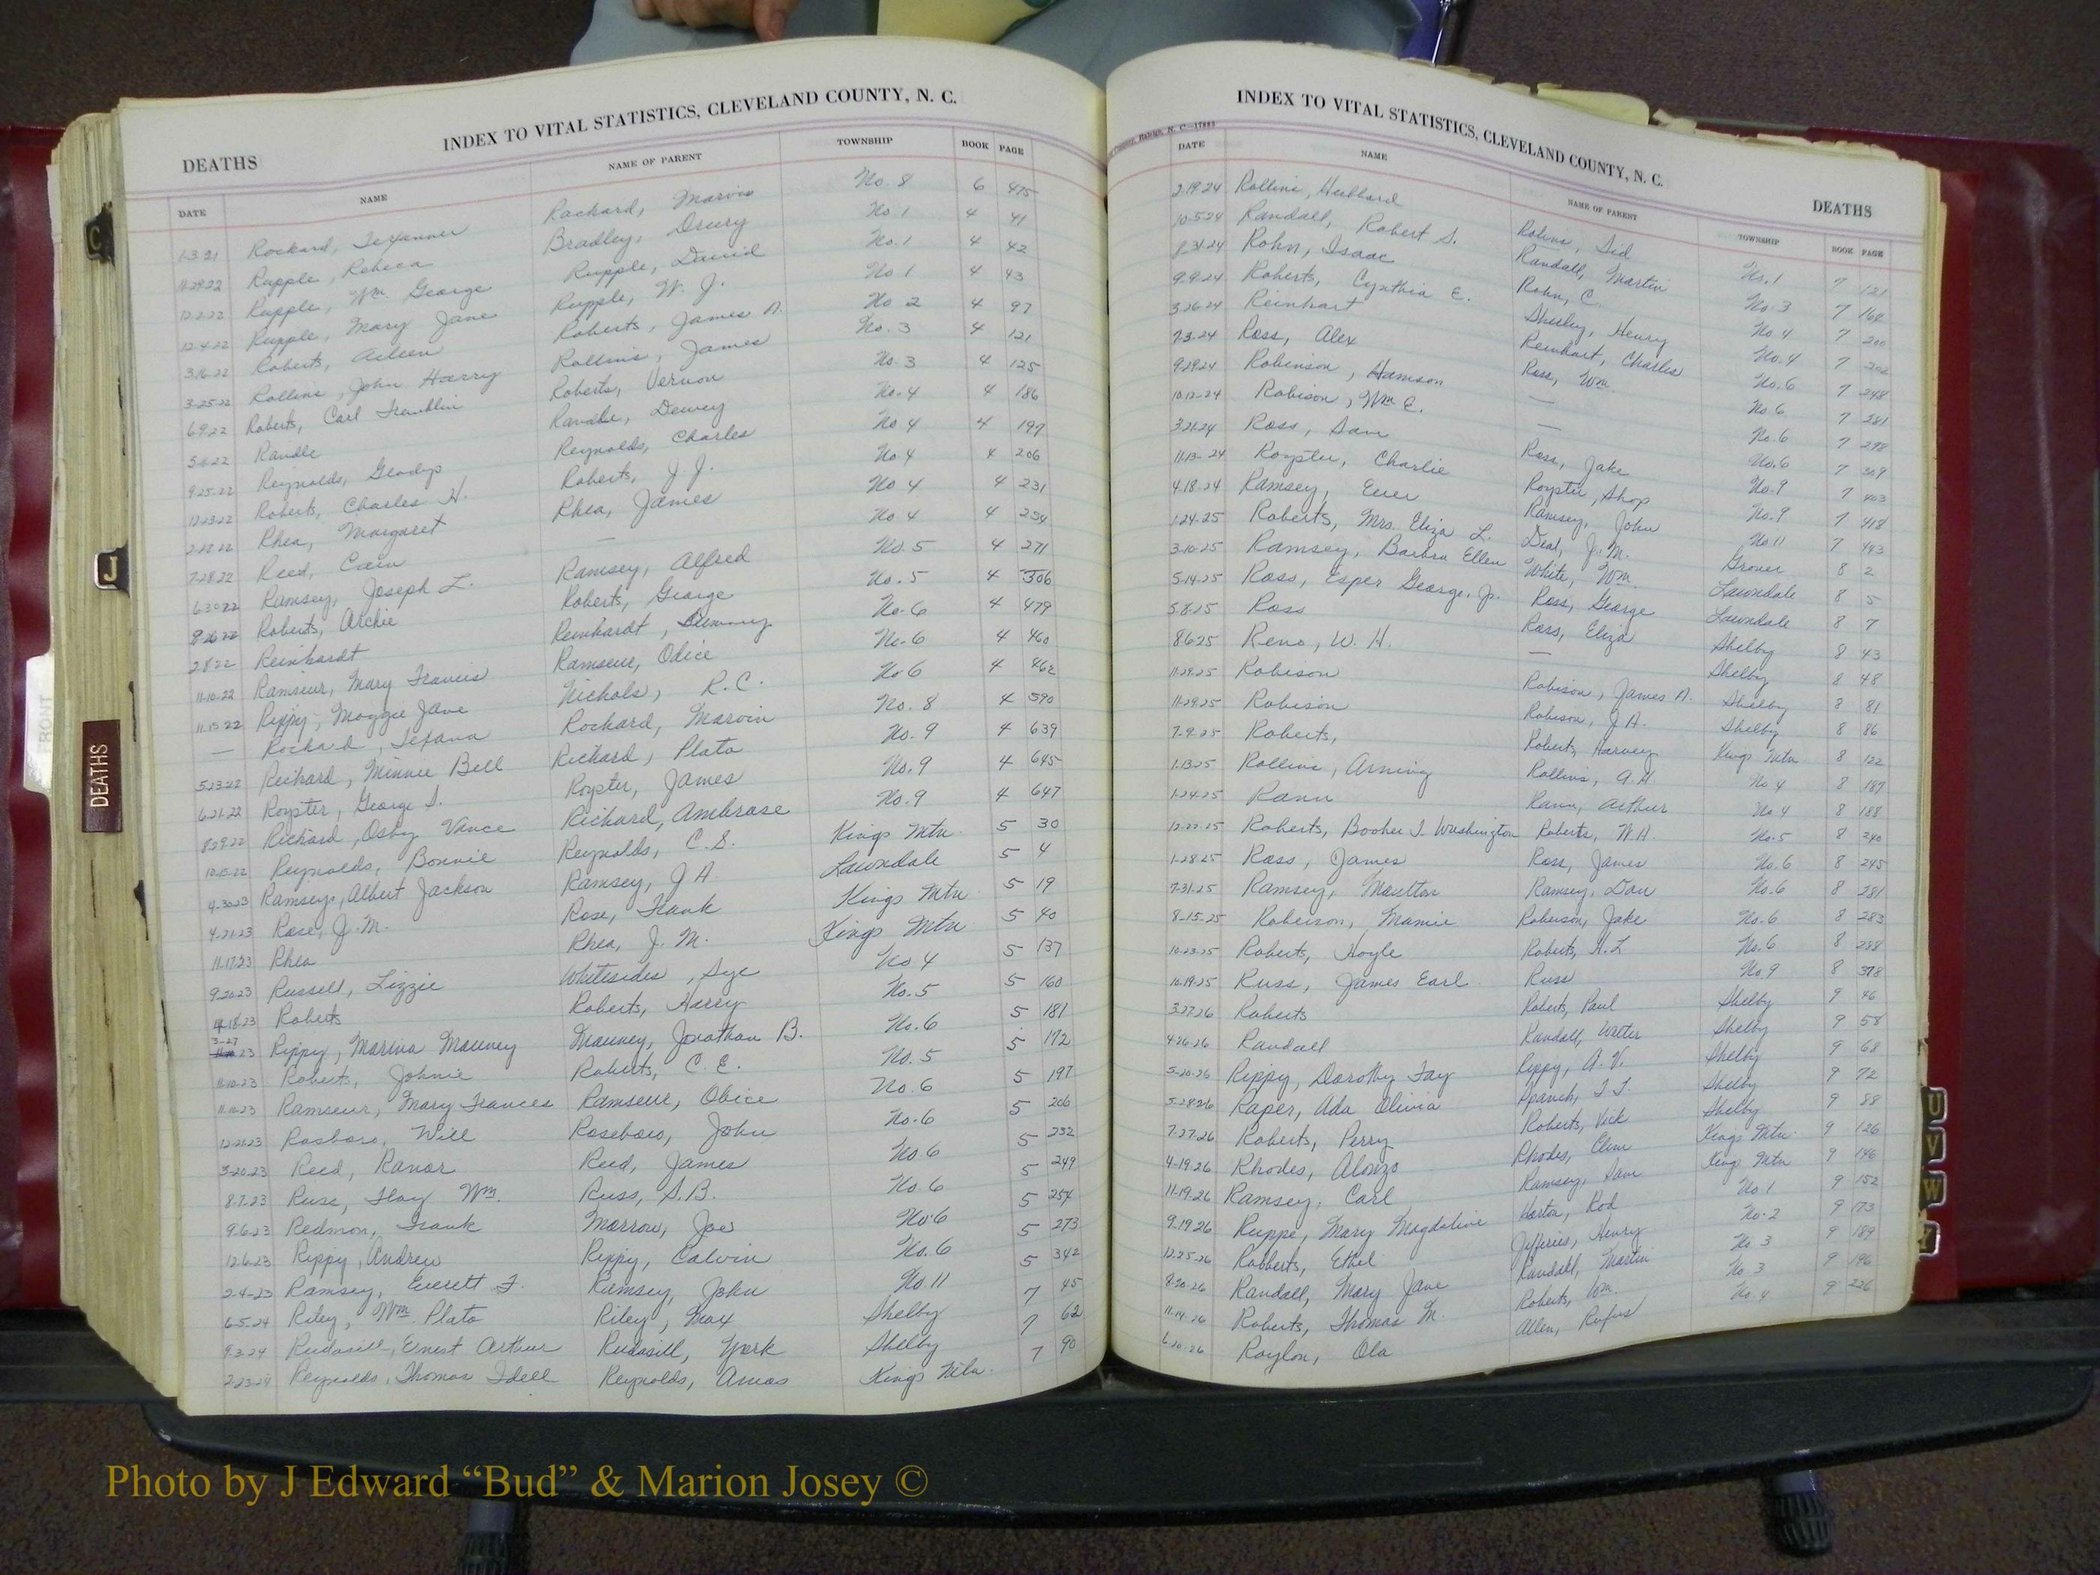 INDEX TO VITAL STATISTICS, CLEVELAND COUNTY, N. C.
DEATHS
DATE NAME NAME OF PARENT TOWNSHIP BOOK PAGE
1-3 21 Rockard, Texanner Rackard, Marvin No. 8 6 475
11-29-22 Rupple, Rebeca Bradley, Drury No. 1 4 41
12-2-22 Rupple, Wm. George Rupple, David No. 1 4 42
12-4-22 Rupple, Mary Jane Rupple, W. J. No 1 4 43
3-16-22 Roberts, Aileen Roberts, James A. No 2 4 97
3-25-22 Rollins, John Harry Rollins, James No. 3 4 121
6-9-22 Roberts, Carl Franklin Roberts, Vernon No. 3 4 125
5-1-22 Randle Randle, Dewey No. 4 4 186
9-25-22 Reynolds, Gladys Reynolds, Charles No 4 4 197
12-23-22 Roberts, Charles H. Roberts, J. J. No 4 4 206
2-22-22 Rhea, Margaret Rhea, James No 4 4 231
7-28-22 Reed, Cain — No 4 4 234
6-30-22 Ramsey, Joseph L. Ramsey, Alfred No. 5 4 271
9-26-22 Roberts, Archie Roberts, George No. 5 4 306
2-8-22 Reinhardt Reinhardt, No. 6 4 479
11-10-22 Ramseur, Mary Francis Ramseur, Odice No. 6 4 460
11-15-22 Rippy, Maggie Jane Nichols, R. C. No 6 4 462
— Rochard, Texana Rochard, Marvin No. 8 4 590
5-23-22 Reichard, Minnie Bell Richard, Plato No. 9 4 639
6-21-22 Royster, George S. Royster, James No. 9 4 645
8-29-22 Richard, Osby Vance Richard, Ambrose No. 9 4 647
10-15-22 Reynolds, Bonnie Reynolds, C. S. Kings Mtn. 5 30
4-30-23 Ramseys, Albert Jackson Ramsey, J A. Lawndale 5 4
4-21-23 Rose, J. M. Rose, Frank Kings Mtn 5 19
11-17-23 Rhea Rhea, J. M. Kings Mtn 5 40
9-20-23 Russell, Lizzie Whitesides, Sye No 4 5 137
4-18-23 Roberts Roberts, Harry No. 5 5 160
3-27 23 Rippy, Marina Mauney Mauney, Jonathan B. No. 6 5 181
11-10-23 Roberts, Johnie Roberts, C. E. No. 5 5 172
11-11-23 Ramseur, Mary Frances Ramseur, Obice No. 6 5 197
12-21-23 Rosboro, Will Roseboro, John No. 6 5 206
3-20-23 Reed, Ranor Reed, James No 6 5 232
8-7-23 Russ, Flay Wm. Russ, S. B. No. 6 5 249
9-6-23 Redmon, Frank Morrow, Joe No 6 5 254
12-6-23 Rippy, Andrew Rippy, Calvin No. 6 5 273
2-4-23 Ramsey, Everett F. Ramsey, John No. 11 5 342
6-5-24 Riley, Wm. Plato Riley, Max Shelby 7 45
9-3-24 Rudasill, Ernest Arthur Rudasill, York Shelby 7 62
2-23-24 Reynolds, Thomas Idell Reynolds, Amos Kings Mtn. 7 90
INDEX TO VITAL STATISTICS, CLEVELAND COUNTY, N. C.
DEATHS
DATE NAME NAME OF PARENT TOWNSHIP BOOK PAGE
2-19-24 Rollins, Hubbard Robins, Sid No. 1 7 121
10-5-24 Randall, Robert S. Randall, Martin No. 3 7 164
8-31-24 Rohn, Isaac Rohn, C. No 4 7 200
9-9-24 Roberts, Cynthia E. Shelby, Henry No. 4 7
3-26-24 Reinhart Reinhart, Charles No. 6 7 248
7-3-24 Ross, Alex Ross, Wm. No. 6 7 281
9-29-24 Robinson, Hamson — No. 6 7 298
10-12-24 Robison, Wm E. — No. 6 7 309
3-21-24 Ross, Sam Ross, Jake No. 9 7 403
11-13-24 Royster, Charlie Royster, Shop No. 9 7 418
4-18-24 Ramsey, Ramsey, John No 11 7 443
1-24-25 Roberts, Mrs. Eliza L. Deal, J. M. Grover 8 2
3-10-25 Ramsey, Barbra Ellen White, Wm. Lawndale 8 5
5-14-25 Ross, Esper George, Jr. Ross, George Lawndale 8 7
5-8-25 Ross Ross, Eliza Shelby 8 43
8-6-25 Reno, W. H. — Shelby 8 48
11-29-25 Robison Robison, James A. Shelby 8 81
11-29-25 Robison Robison, J. A. Shelby 8 86
7-9-25 Roberts, Roberts, Harvey Kings Mtn 8 122
1-13-25 Rollins, Arning Rollins, A. H. No 4 8 187
1-24-25 Rann Rann, Arthur No 4 8 188
12-22-25 Roberts, Booker T Washington Roberts, W. A. No. 5 8 240
1-28-25 Ross, James Ross, James No. 6 8 245
7-31-25 Ramsey, Maulton Ramsey, Dan No. 6 8 281
8-15-25 Roberson, Mamie Roberson, Jake No. 6 8 283
10-23-25 Roberts, Hoyle Roberts, H. L No. 6 8 288
10-19-25 Russ, James Earl Russ No. 9 8 378
3-27-26 Roberts Roberts, Paul Shelby 9 46
4-26-26 Randall Randall, Walter Shelby 9 58
5-20-26 Rippy, Dorothy Fay Rippy, A. V. Shelby 9 68
5-28-26 Raper, Ada Olivia Spanch, T. T. Shelby 9 72
7-27-26 Roberts, Perry Roberts, Vick Shelby 9 88
4-19-26 Rhodes, Alonzo Rhodes, Clem Kings Mtn. 9 126
11-19-26 Ramsey, Carl Ramsey, Sam Kings Mtn 9 146
9-19-26 Ruppe, Mary Magdaline Horton, Rod No 1 9 152
12-25-26 Robberts, Ethel Jefferies, Henry No. 2 9 173
8-20-26 Randall, Mary Jane Randall, Martin No 3 9 189
11-14-26 Roberts, Thomas M. Roberts, Wm. No. 3 9 196
6-20-26 Roylon, Ola Allen, Rufus No. 4 9 226
C
J
DEATHS
FRONT
U
V
W
Y
Photo by J Edward “Bud” & Marion Josey ©